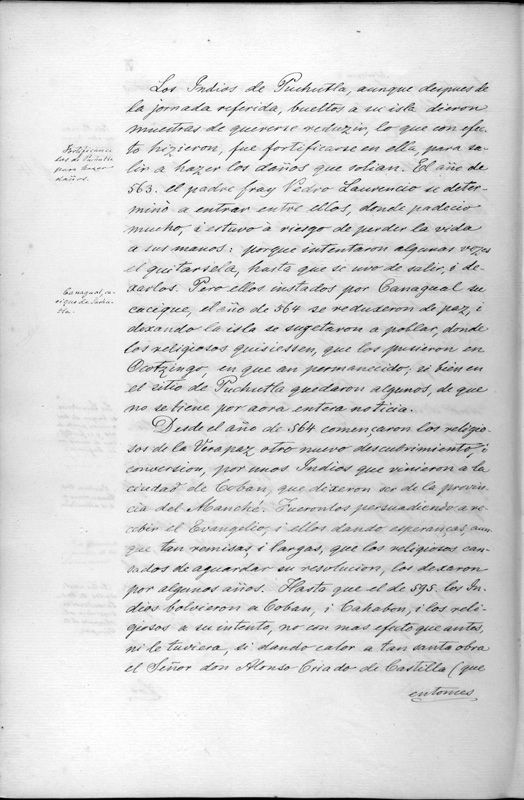 Los Indios de Puchutla, aunque despues de
la jornada referida, bueltos a su isla dieron
muestras de quererse reduzir, lo que con efec-
to hizieron, fue fortificarse en ella, para sa-
lir a hazer los daños que solian. El año de
563. el padre fray Pedro Laurencio se deter-
minò a entrar entre ellos, donde padecio
mucho, i estuvo à riesgo de perder la vida
a sus manos: porque intentaron algunas vezes
el quitarsela, hasta que se uvo de salir, i de-
xarlos. Pero ellos instados por Canagual su
cacique, el año de 564 se reduxeron de paz, i
dexando la isla se sugetaron a poblar, donde
los religiosos quisiessen, que los pusieron en
Ocotzingo, en que an permanecido, si bien en
el sitio de Puchutla quedaron algunos, de que
no se tiene por aora entera noticia.
Desde el año de 564 començaron los religio-
sos de la Verapaz otro nuevo descubrimiento, i
conversion, por unos Indios que vinieron a la
ciudad de Coban, que dixeron ser de la provin-
cia del Manché. Fueronlos persuadiendo a re-
cebir el Evangelio, i ellos dando esperanças, aun-
que tan remisas, i largas, que los religiosos can-
sados de aguardar su resolucion, los dexaron
por algunos años. Hasta que el de 595. los In-
dios bolvieron a Coban, i Cahabon, i los reli-
giosos a su intento, no con mas efeto que antes,
ni le tuviera, si dando calor a tan santa obra
el Señor don Alonso Criado de Castilla (que
entonces
Fortificanse
los de Puchutla
para hazer
daños.
Canagual, ca-
cique de Puchu-
tla.